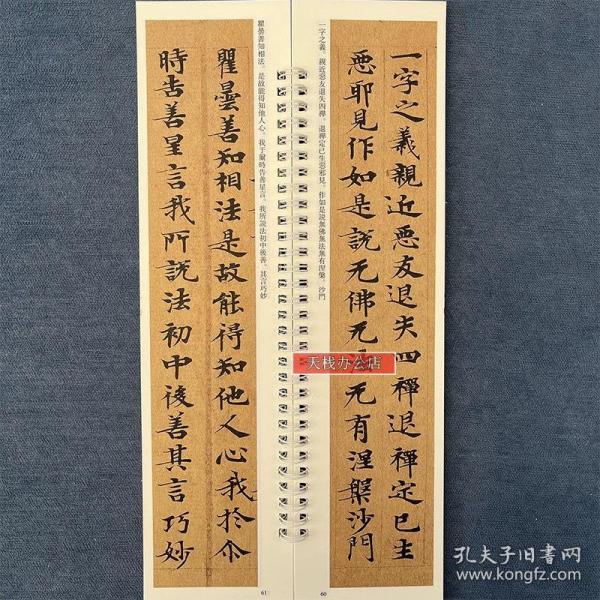 一字之義親近恶友退失四禪退禪定已生
恶耶見作如是説无佛无法无有涅槃沙門
一字之義。親近惡友退失四禪。退禪定已生惡邪見。作如是説無佛無法無有涅槃。沙門
60
瞿曇善知相法。是故能得知他人心。我于爾時告善星言。我所說法初中後善。其言巧妙
瞿曇善知相法是故能得知他人心我於尒
時告善星言我所說法初中後善其言巧妙
61
天栈办公店
孔夫子旧书网
www.kongfz.com